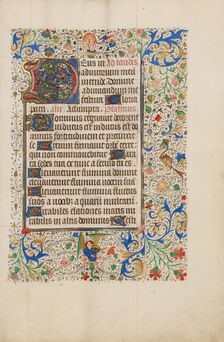 Deus in Ad laudes
adiutorium meum
intende. Domine
ad adiuvandum
me festina. Gloria
patri. Assumpta. psalmus
Dominus regnavit decorem
indutus est indutus est do
minus fortitudinem et precin
xit se Etenim firmavit orbem ter
re qui non commovebitur Pa
rata sedes tua ex tunc a seculo tu es
Elevaverunt flumina domine
elevaverunt flumina vocem suam
Elevaverunt flumina fluctus
suos a vocibus aquarum multarum
Mirabiles elationes maris mi
rabilis in altis dominus Testi